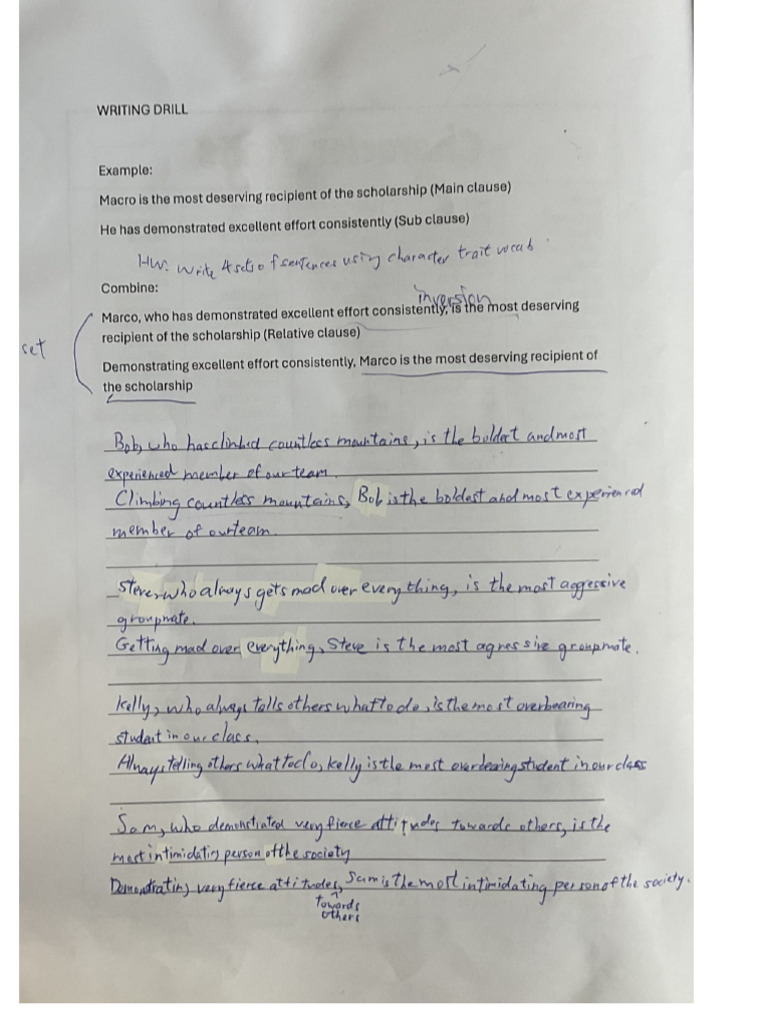 WRITING DRILL
Example:
Macro is the most deserving recipient of the scholarship (Main clause)
He has demonstrated excellent effort consistently (Sub clause)
HW: Write 4 sets of sentences using character trait vocab
Combine:
inversion
Marco, who has demonstrated excellent effort consistently, is the most deserving
recipient of the scholarship (Relative clause)
set
Demonstrating excellent effort consistently, Marco is the most deserving recipient of
the scholarship
Bob, who has climbed countless mountains, is the boldest and most
experienced member of our team.
Climbing countless mountains, Bob is the boldest and most experienced
member of our team.
Steve, who always gets mad over everything, is the most aggressive
groupmate.
Getting mad over everything, Steve is the most agressive groupmate.
Kelly, who always tells others what to do, is the most overbearing
student in our class.
Always telling others what to do, Kelly is the most overbearing student in our class
Sam, who demonstrated very fierce attitudes towards others, is the
most intimidating person of the society
Demonstrating very fierce attitudes, Sam is the most intimidating person of the society.
towards
others